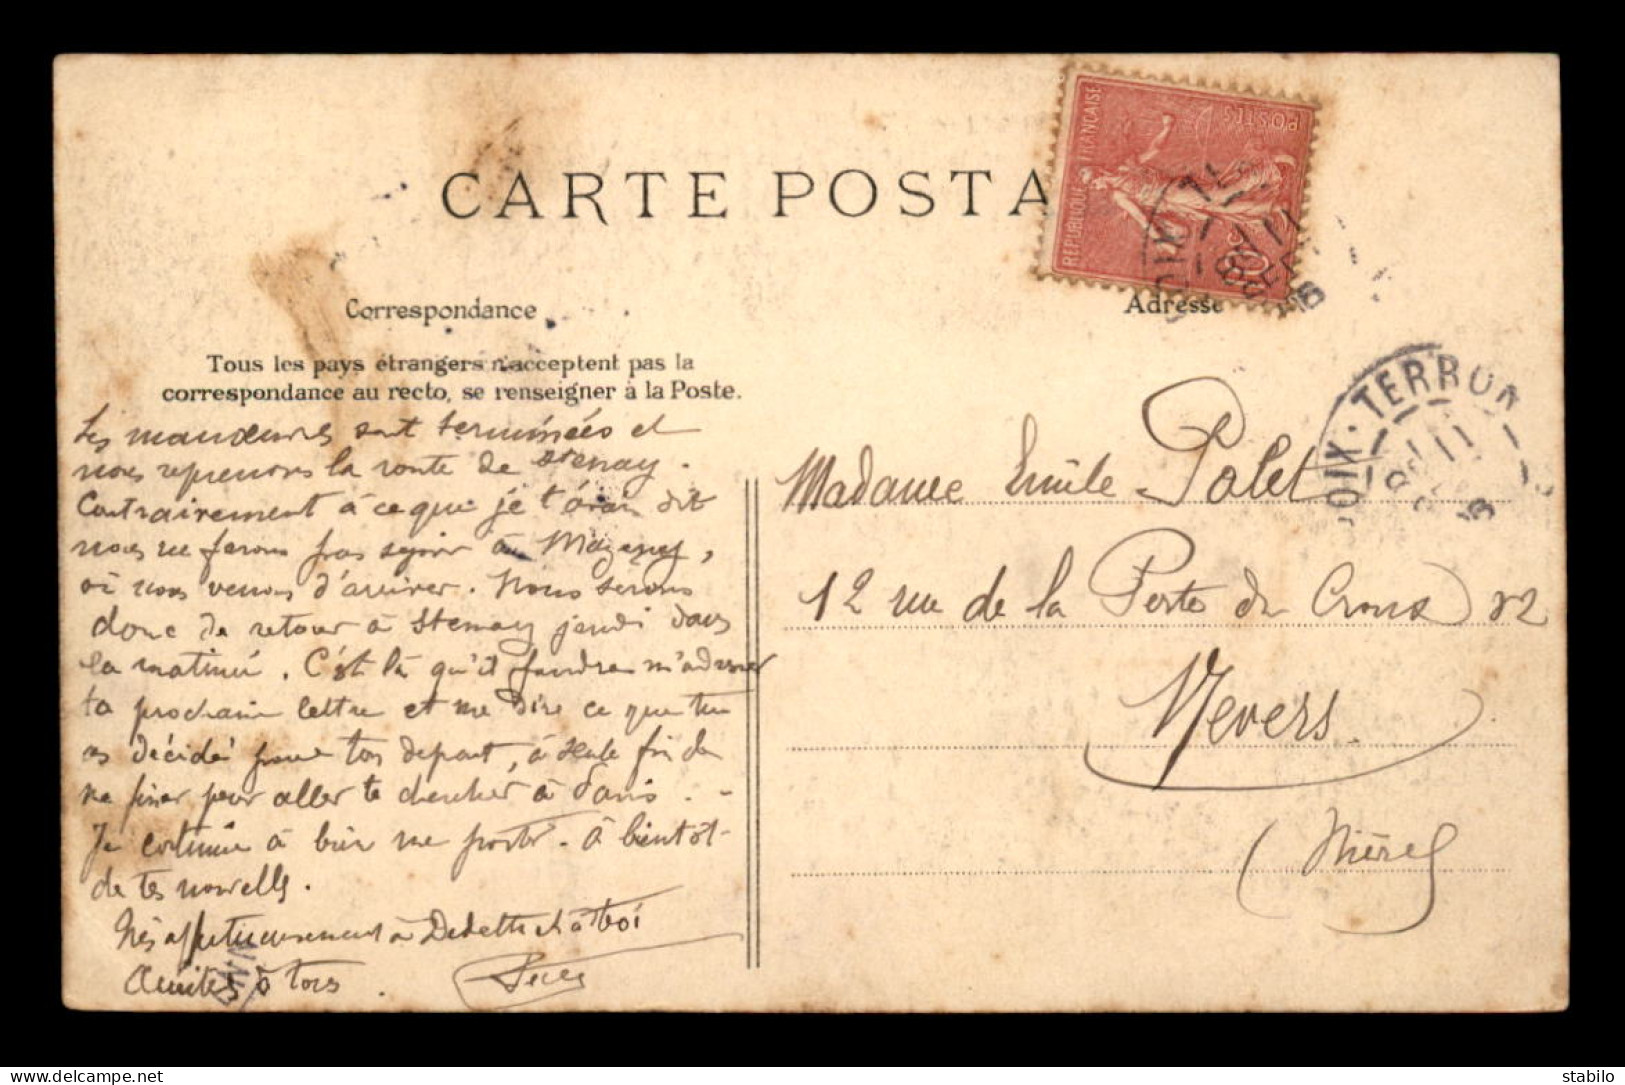 CARTE POSTA
RÉPUBLIQUE FRANÇAISE
POSTES
10c
Correspondance
Adresse
Tous les pays étrangers n'acceptent pas la
correspondance au recto, se renseigner à la Poste.
JOIX · TERRON
11
Les manœuvres sont terminées et
nous reprenons la route de Stenay.
Contrairement à ce que je t'avais dit
nous ne ferons pas séjour à Mazerny,
où nous venons d'arriver. Nous serons
donc de retour à Stenay jeudi dans
la matinée. C'est là qu'il faudra m'adresser
ta prochaine lettre et me dire ce que tu
as décidé pour ton départ, à seule fin de
me fixer pour aller te chercher à Paris. -
Je continue à bien me porter. À bientôt
de tes nouvelles.
Très affectueusement à Dedette et à toi
Amitiés à tous.
Madame Emile Palet
12 rue de la Porte du Croux 12
Nevers
(Nièvre)
stabilo